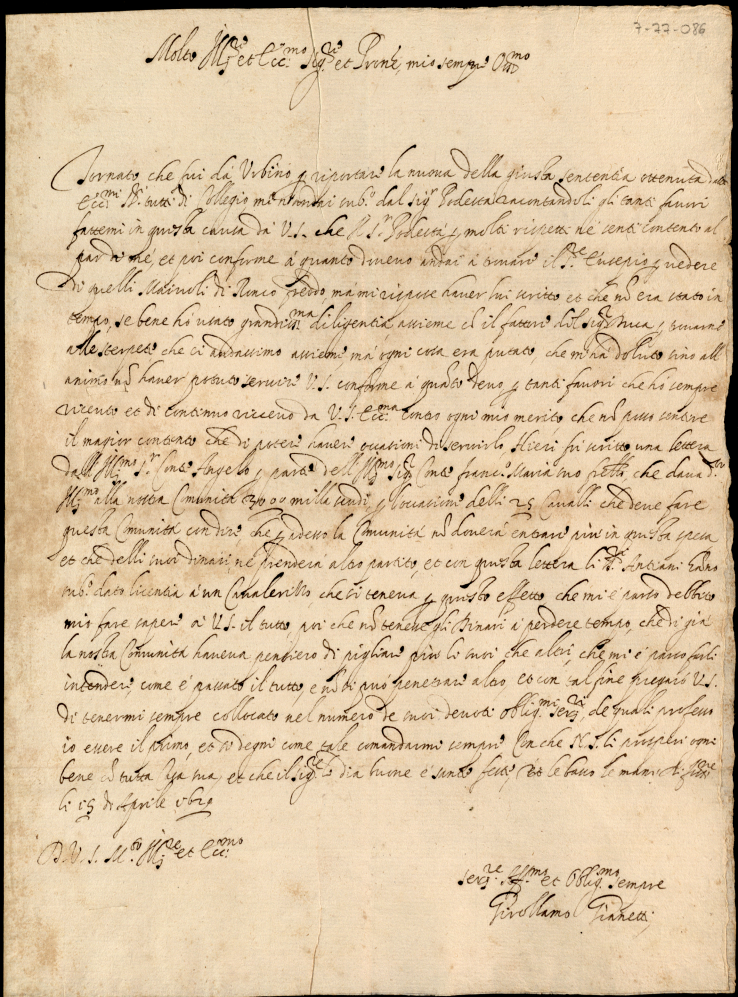 7-77-086
Molto Ill.re et Ecc.mo Sig.re et Prone, mio sempre Oss.mo
Tornato che fui da Urbino p riportare la nuova della giusta sententia ottenuta dalli
Ecc.mi SS.ri tutti di Collegio me n'andai sub.o dal Sig.r Podestà racontandoli gli tanti favori
fattemi in questa causa da V.S. che il S.r Podestà p molti rispetti ne senti contento al
par di me, et poi conforme a quanto dovevo andai a trovare il S.re Eusepio p vedere
di quelli di Ronco freddo, ma mi rispose haver lui scritto et che nō era stato in
tempo, se bene ho usato grandiss.ma diligentia assieme cō il fattore del Sig.r p trovarne
che ci andassimo assieme ma ogni cosa era che m'ha doluto sino all
animo nō haver potuto servire V.S. conforme a quāto devo p tanti favori che ho sempre
ricevuto et di continuo ricevo da V.S. Ecc.ma contro ogni mio merito che nō posso sentire
il magior contento che di potere havere occasioni di servirlo. Hieri fu scritto una lettera
dall Ill.mo S.r Conte Angello p parte dell Ill.mo Sig.r Conte Franc.o Maria suo frēllo che dava
Ill.ma alla nostra Comunità milla scudi p l'occasione delli 25 Cavalli che deve fare
questa Comunità con dire che p adesso la Comunità nō doverà entrare più in questa spesa
et che delli suoi dinari ne prenderà altro partito, et con questa lettera li SS.ri Antiani hāno
sub.o dato licentia a un Cavalerizzo, che si teneva p questo effetto che mi è parso debbito
mio fare sapere a V.S. il tutto, poi che nō tenesse gli Dinari a perdere tempo, che di già
la nostra Comunità haveva pensiero di pigliare più li suoi che altri, che mi è parso farli
intendere, come è passato il tutto, e nō si può penetrare altro et con tal fine pregarò V.S.
di tenermi sempre collocato nel numero de suoi devoti oblig.mi ser.ri, de quali professo
io essere il primo, et si degni come tale comandarmi sempre. Con che N.S. li prosperi ogni
bene cō tutta Casa sua, et che il Sig.re le dia buone e sante feste, et le bascio le mani di
li 15 di Aprile 1620
D. V. S. M.to Ill.re et Ecc.mo
Ser.re Aff.mo et Oblig.mo sempre
Girollamo Gianetti